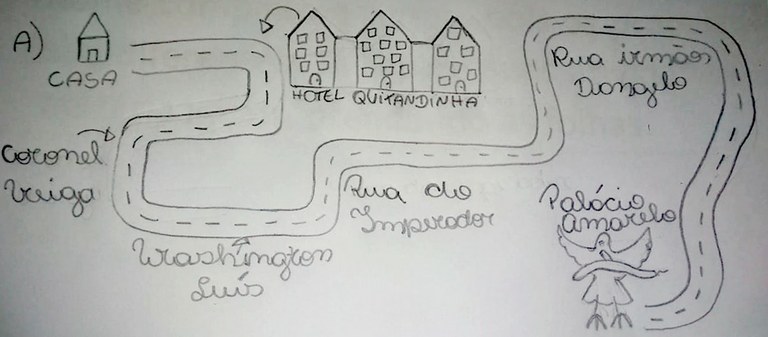 A)
CASA
HOTEL QUITANDINHA
Rua irmãos
Dangelo
Coronel
Veiga
Rua do
Imperador
Palácio
Amarelo
Washington
Luís